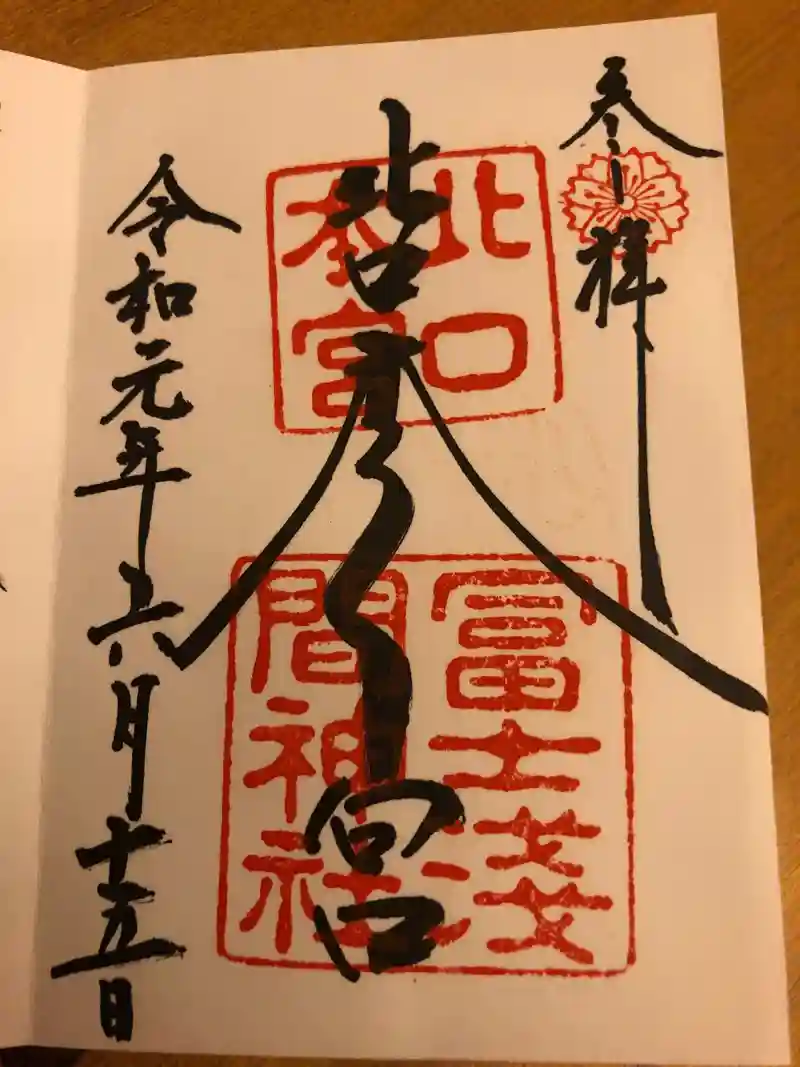 参拝
北口
本宮
北口本宮
冨士浅
間神社
令和元年六月十五日